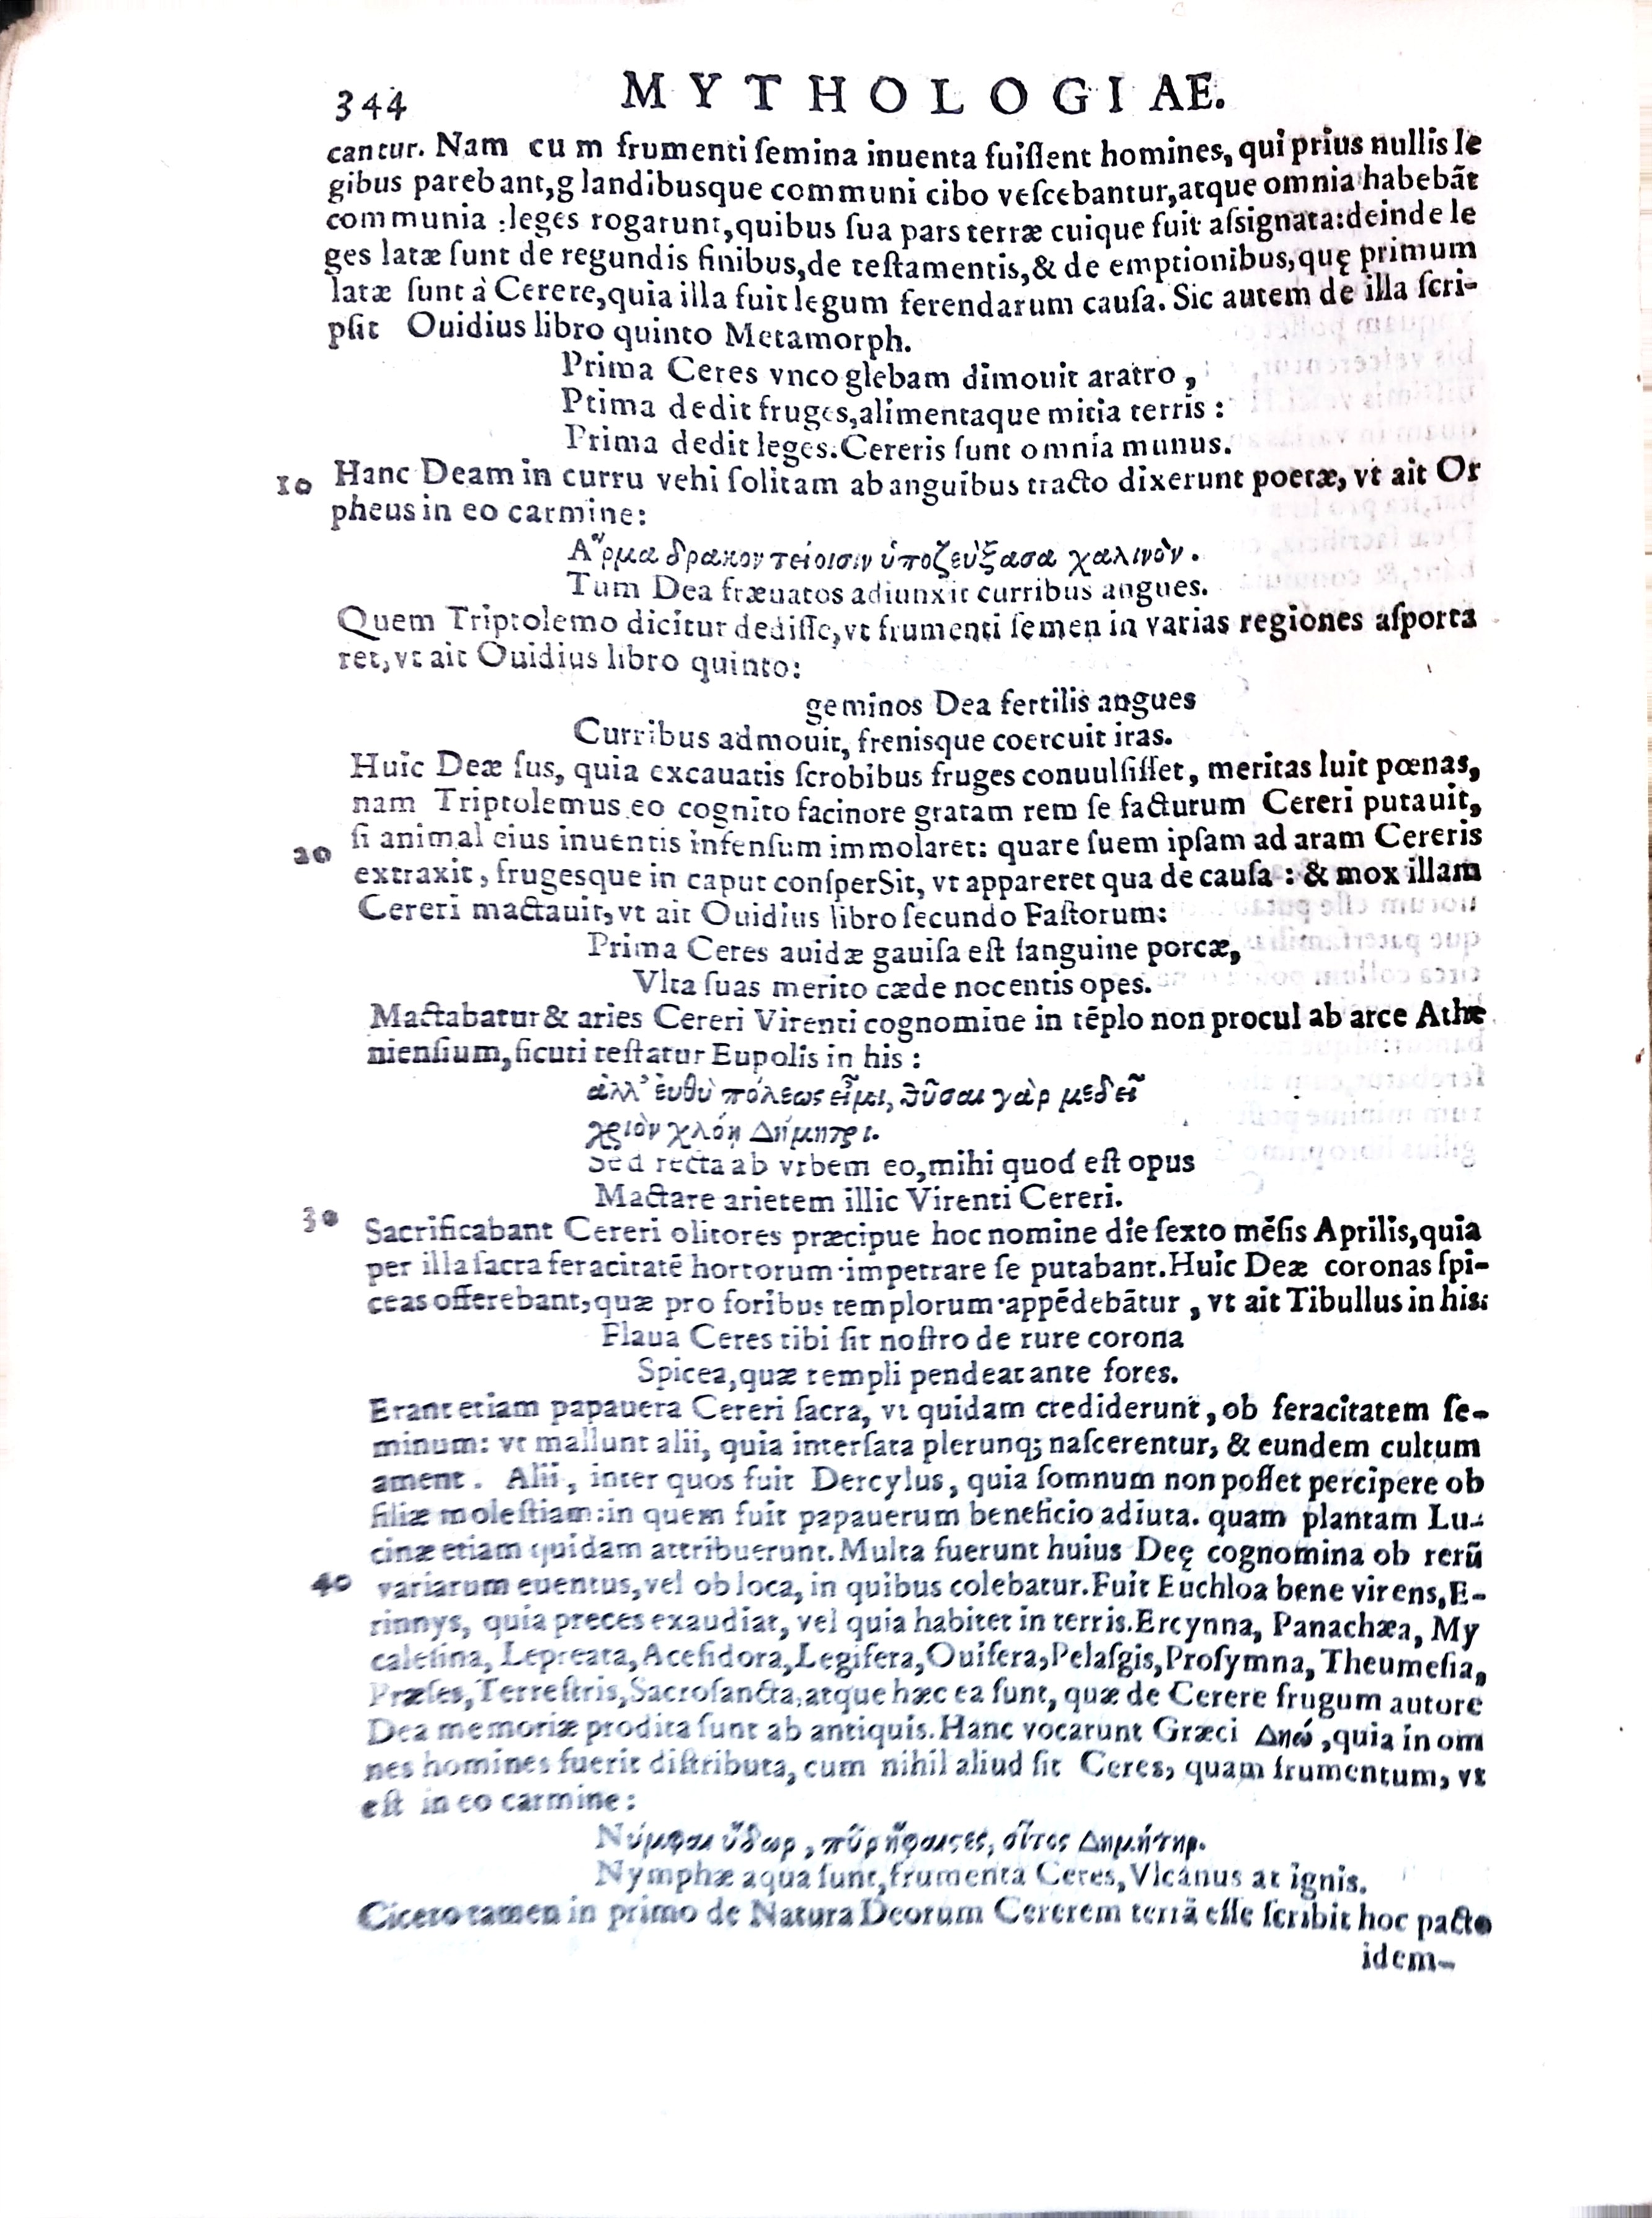 344 MYTHOLOGIAE.
cantur. Nam cu m frumenti ſemina inuenta fuiſſent homines, qui prius nullis le
gibus parebant,g landibusque communi cibo veſcebantur,atque omnia habebāt
communia :leges rogarunt,quibus ſua pars terræ cuique fuit aſsignata:deinde le
ges latæ ſunt de regundis finibus,de teſtamentis,& de emptionibus,quę primum
latæ ſunt à Cerere,quia illa fuit legum ferendarum cauſa. Sic autem de illa ſcri-
pſit Ouidius libro quinto Metamorph.
Prima Ceres vnco glebam dimouit aratro ,
Ptima dedit fruges,alimentaque mitia terris :
Prima dedit leges.Cereris ſunt omnia munus.
10 Hanc Deam in curru vehi ſolitam ab anguibus tracto dixerunt poetæ, vt ait Or
pheus in eo carmine:
Α῎ρμα δρακοντείοισιν ὑποζεύξασα χαλινὸν.
Tum Dea frænatos adiunxit curribus angues.
Quem Triptolemo dicitur dediſſe,vt frumenti ſemen in varias regiones aſporta
ret,vt ait Ouidius libro quinto:
geminos Dea fertilis angues
Curribus admouit, frenisque coercuit iras.
Huic Deæ ſus, quia excauatis ſcrobibus fruges conuulſiſſet, meritas luit pœnas,
nam Triptolemus eo cognito facinore gratam rem ſe facturum Cereri putauit,
20 ſi animal eius inuentis infenſum immolaret: quare ſuem ipſam ad aram Cereris
extraxit, frugesque in caput conſperSit, vt appareret qua de cauſa : & mox illam
Cereri mactauit, vt ait Ouidius libro ſecundo Faſtorum:
Prima Ceres auidæ gauiſa eſt ſanguine porcæ,
Vlta ſuas merito cæde nocentis opes.
Mactabatur & aries Cereri Virenti cognomine in tēplo non procul ab arce Athe
nienſium,ſicuti teſtatur Eupolis in his :
ἀλλ’ ἐυθὺ πόλεως εἶμι, θῦσαι γὰρ με δεῖ
κριὸν χλόη Δήμητρι.
Sed recta ab vrbem eo,mihi quod eſt opus
Mactare arietem illic Virenti Cereri.
30 Sacrificabant Cereri olitores præcipue hoc nomine die ſexto mēſis Aprilis,quia
per illa ſacra feracitatē hortorum impetrare ſe putabant.Huic Deæ coronas ſpi-
ceas offerebant,quæ pro foribus templorum appēdebātur , vt ait Tibullus in his:
Flaua Ceres tibi ſit noſtro de rure corona
Spicea,quæ templi pendeat ante fores.
Erant etiam papauera Cereri ſacra, vt quidam crediderunt, ob feracitatem ſe-
minum: vt mallunt alii, quia interſata plerunq; naſcerentur, & eundem cultum
ament. Alii, inter quos fuit Dercylus, quia ſomnum non poſſet percipere ob
filiæ moleſtiam:in quem fuit papauerum beneficio adiuta. quam plantam Lu-
cinæ etiam quidam attribuerunt.Multa fuerunt huius Deę cognomina ob rerū
40 variarum euentus,vel ob loca, in quibus colebatur.Fuit Euchloa bene virens,E-
rinnys, quia preces exaudiat, vel quia habitet in terris.Ercynna, Panachæa, My
caleſina, Lepreata, Aceſidora,Legifera,Ouifera,Pelaſgis,Proſymna, Theumeſia,
Præſes,Terreſtris,Sacroſancta,atque hæc ea ſunt, quæ de Cerere frugum autore
Dea memoriæ prodita ſunt ab antiquis.Hanc vocarunt Græci Δηώ ,quia in om
nes homines fuerit diſtributa, cum nihil aliud ſit Ceres, quam frumentum, vt
eſt in eo carmine:
Νύμφαι ὕδωρ , πῦρ ἥφαιςες, σῖτος Δημήτηρ.
Nymphæ aqua ſunt,frumenta Ceres,Vlcanus at ignis.
Cicero tamen in primo de Natura Deorum Cererem terrā eſſe ſcribit hoc pacto
idem-